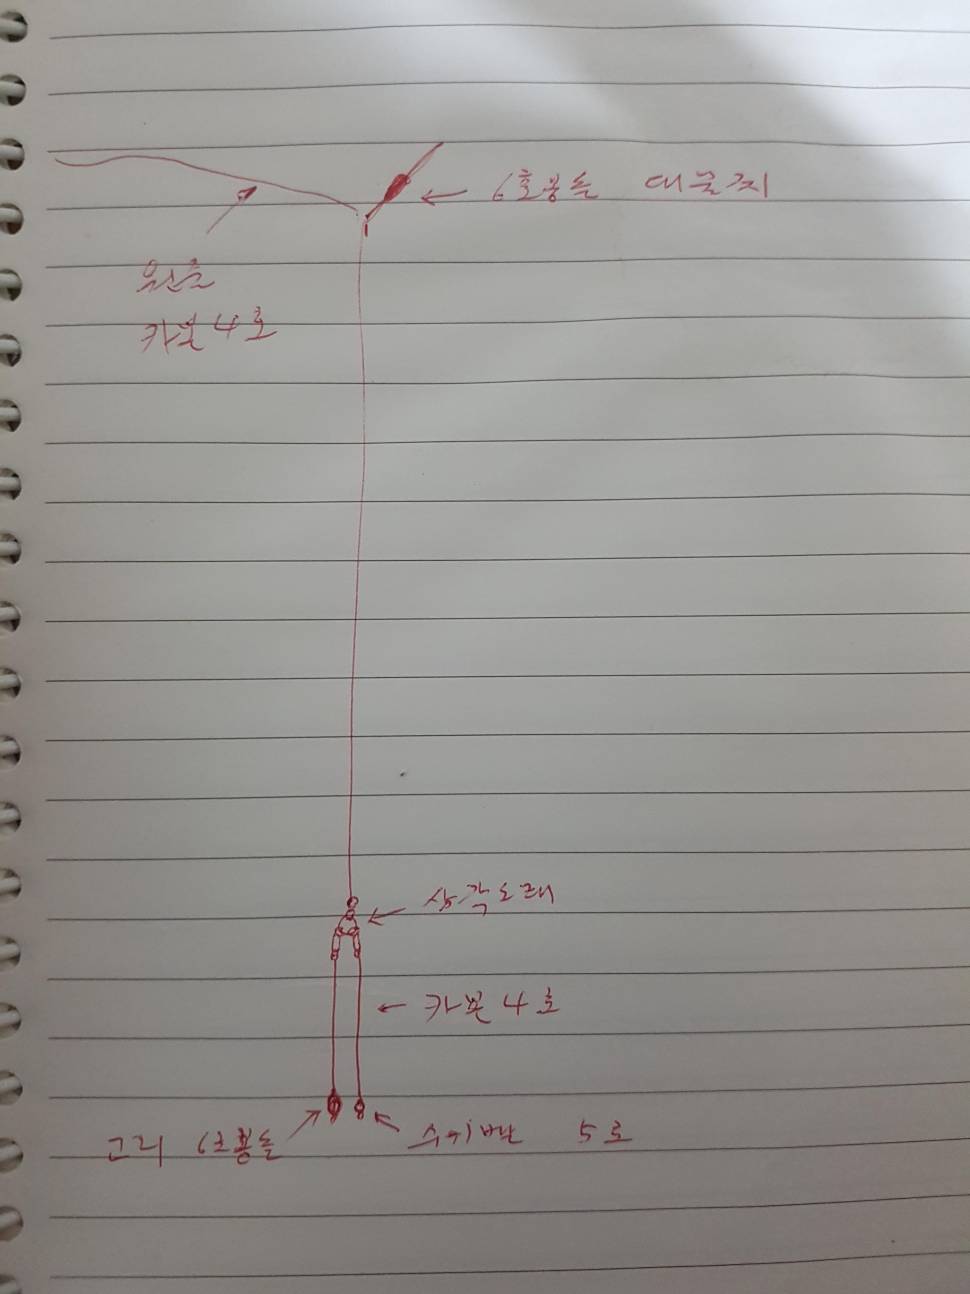 6호봉돌 대물찌
원줄
카본 4호
삼각도래
카본 4호
고리 6호봉돌
스위벨 5호